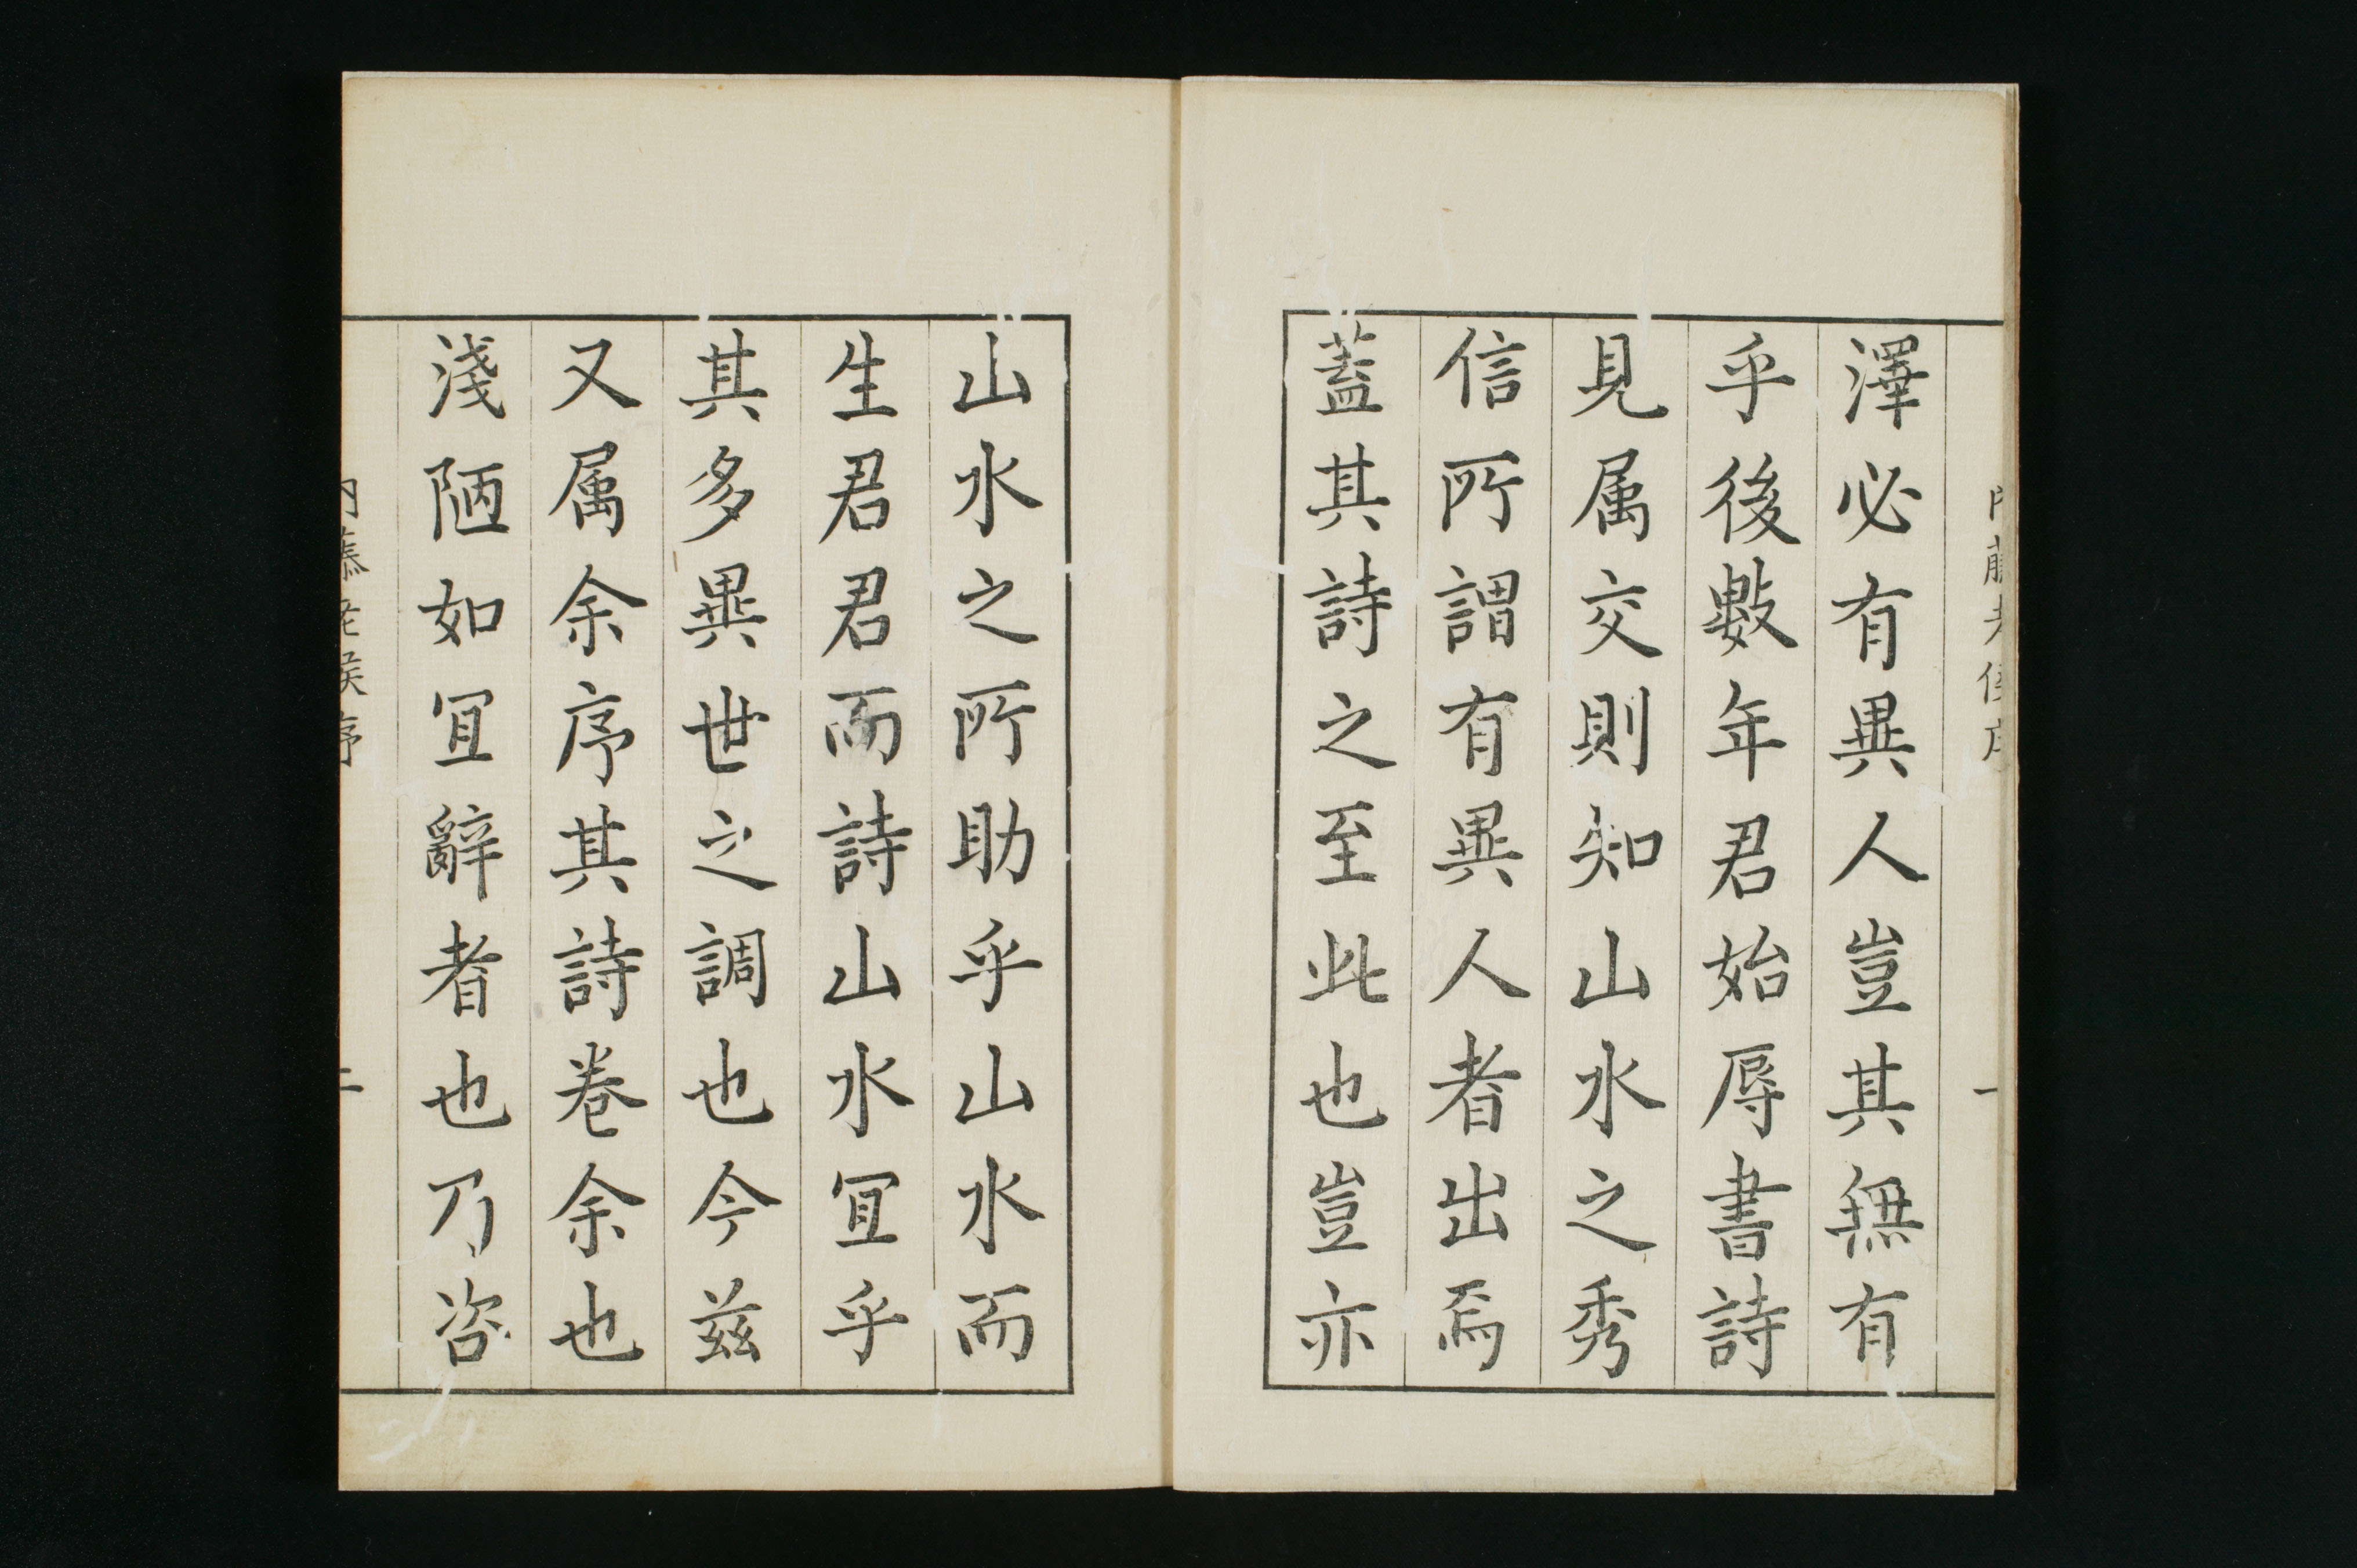 澤必有異人豈其無有
乎後數年君始辱書詩
見属交則知山水之秀
信所謂有異人者出焉
蓋其詩之至此也豈亦
山水之所助乎山水而
生君君而詩山水宜乎
其多異世之調也今茲
又属余序其詩卷余也
淺陋如宜辭者也乃咨